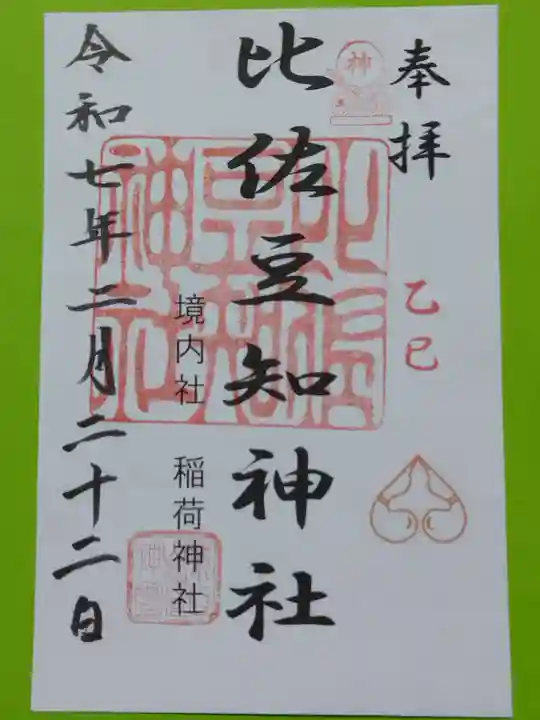 奉拝
乙巳
神
比佐豆知神社
境内社 稲荷神社
令和七年二月二十二日